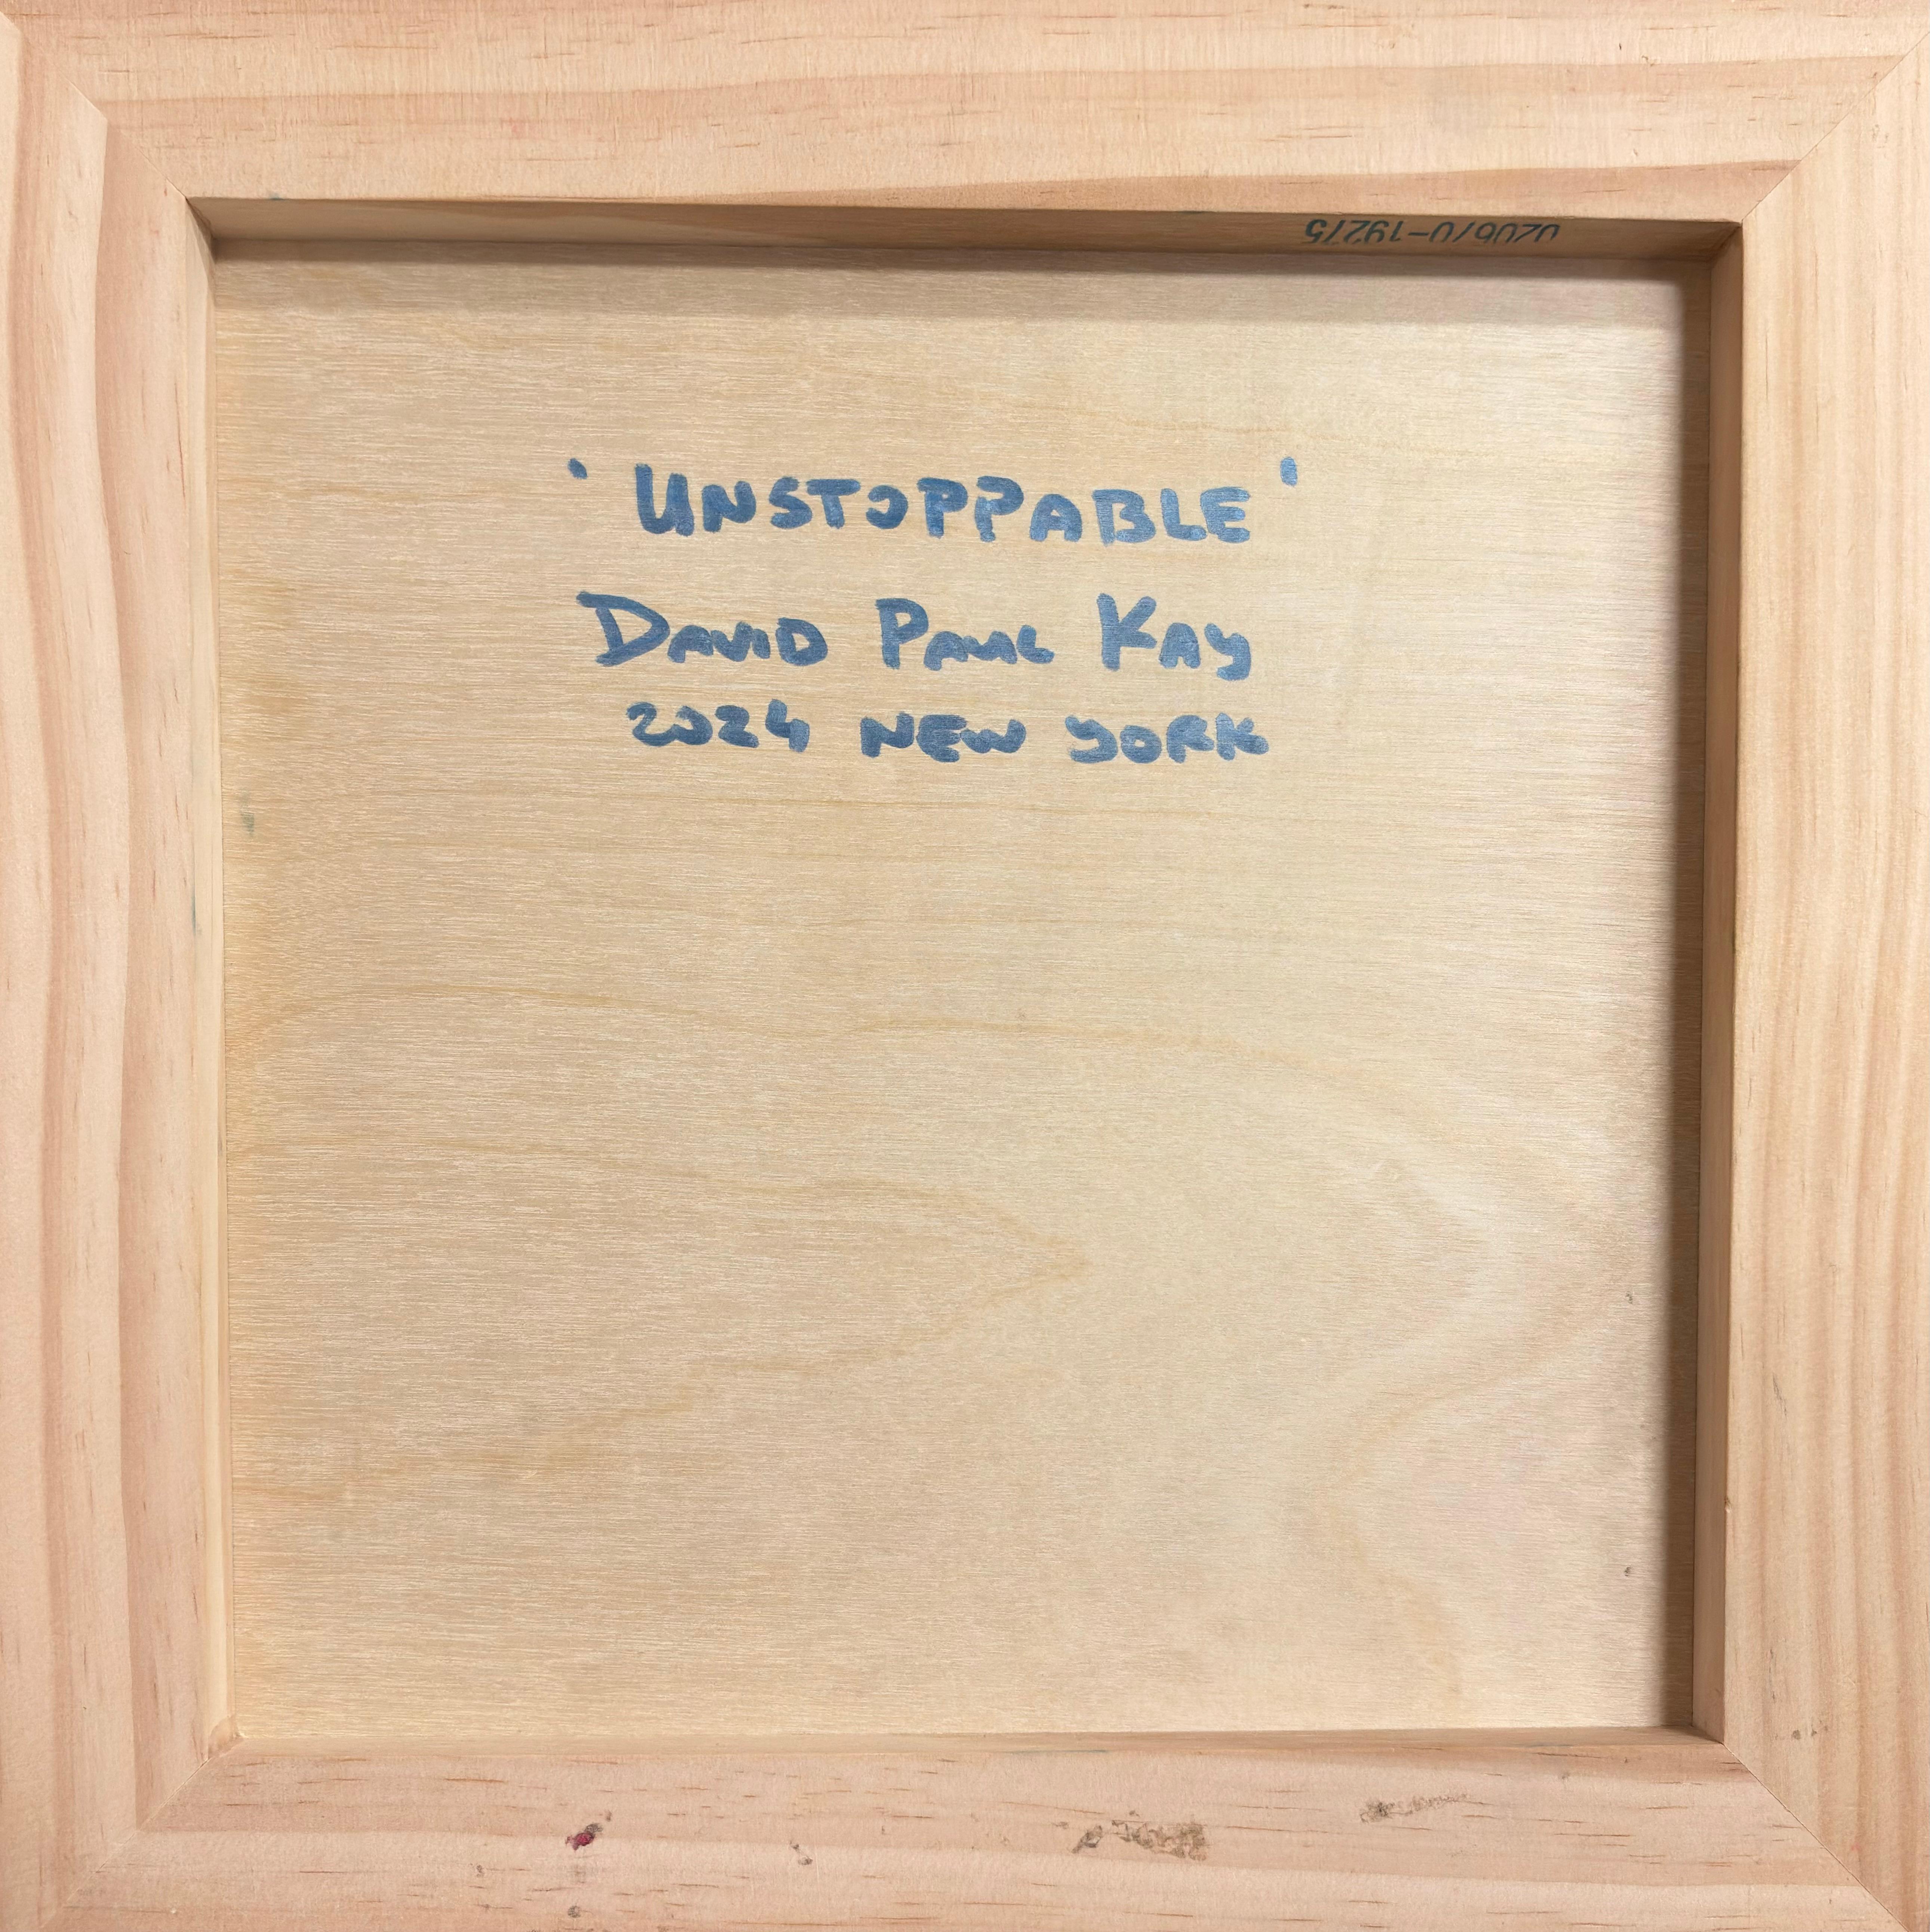 020670-19275
'UNSTOPPABLE'
DAVID PAUL KAY
2024 NEW YORK